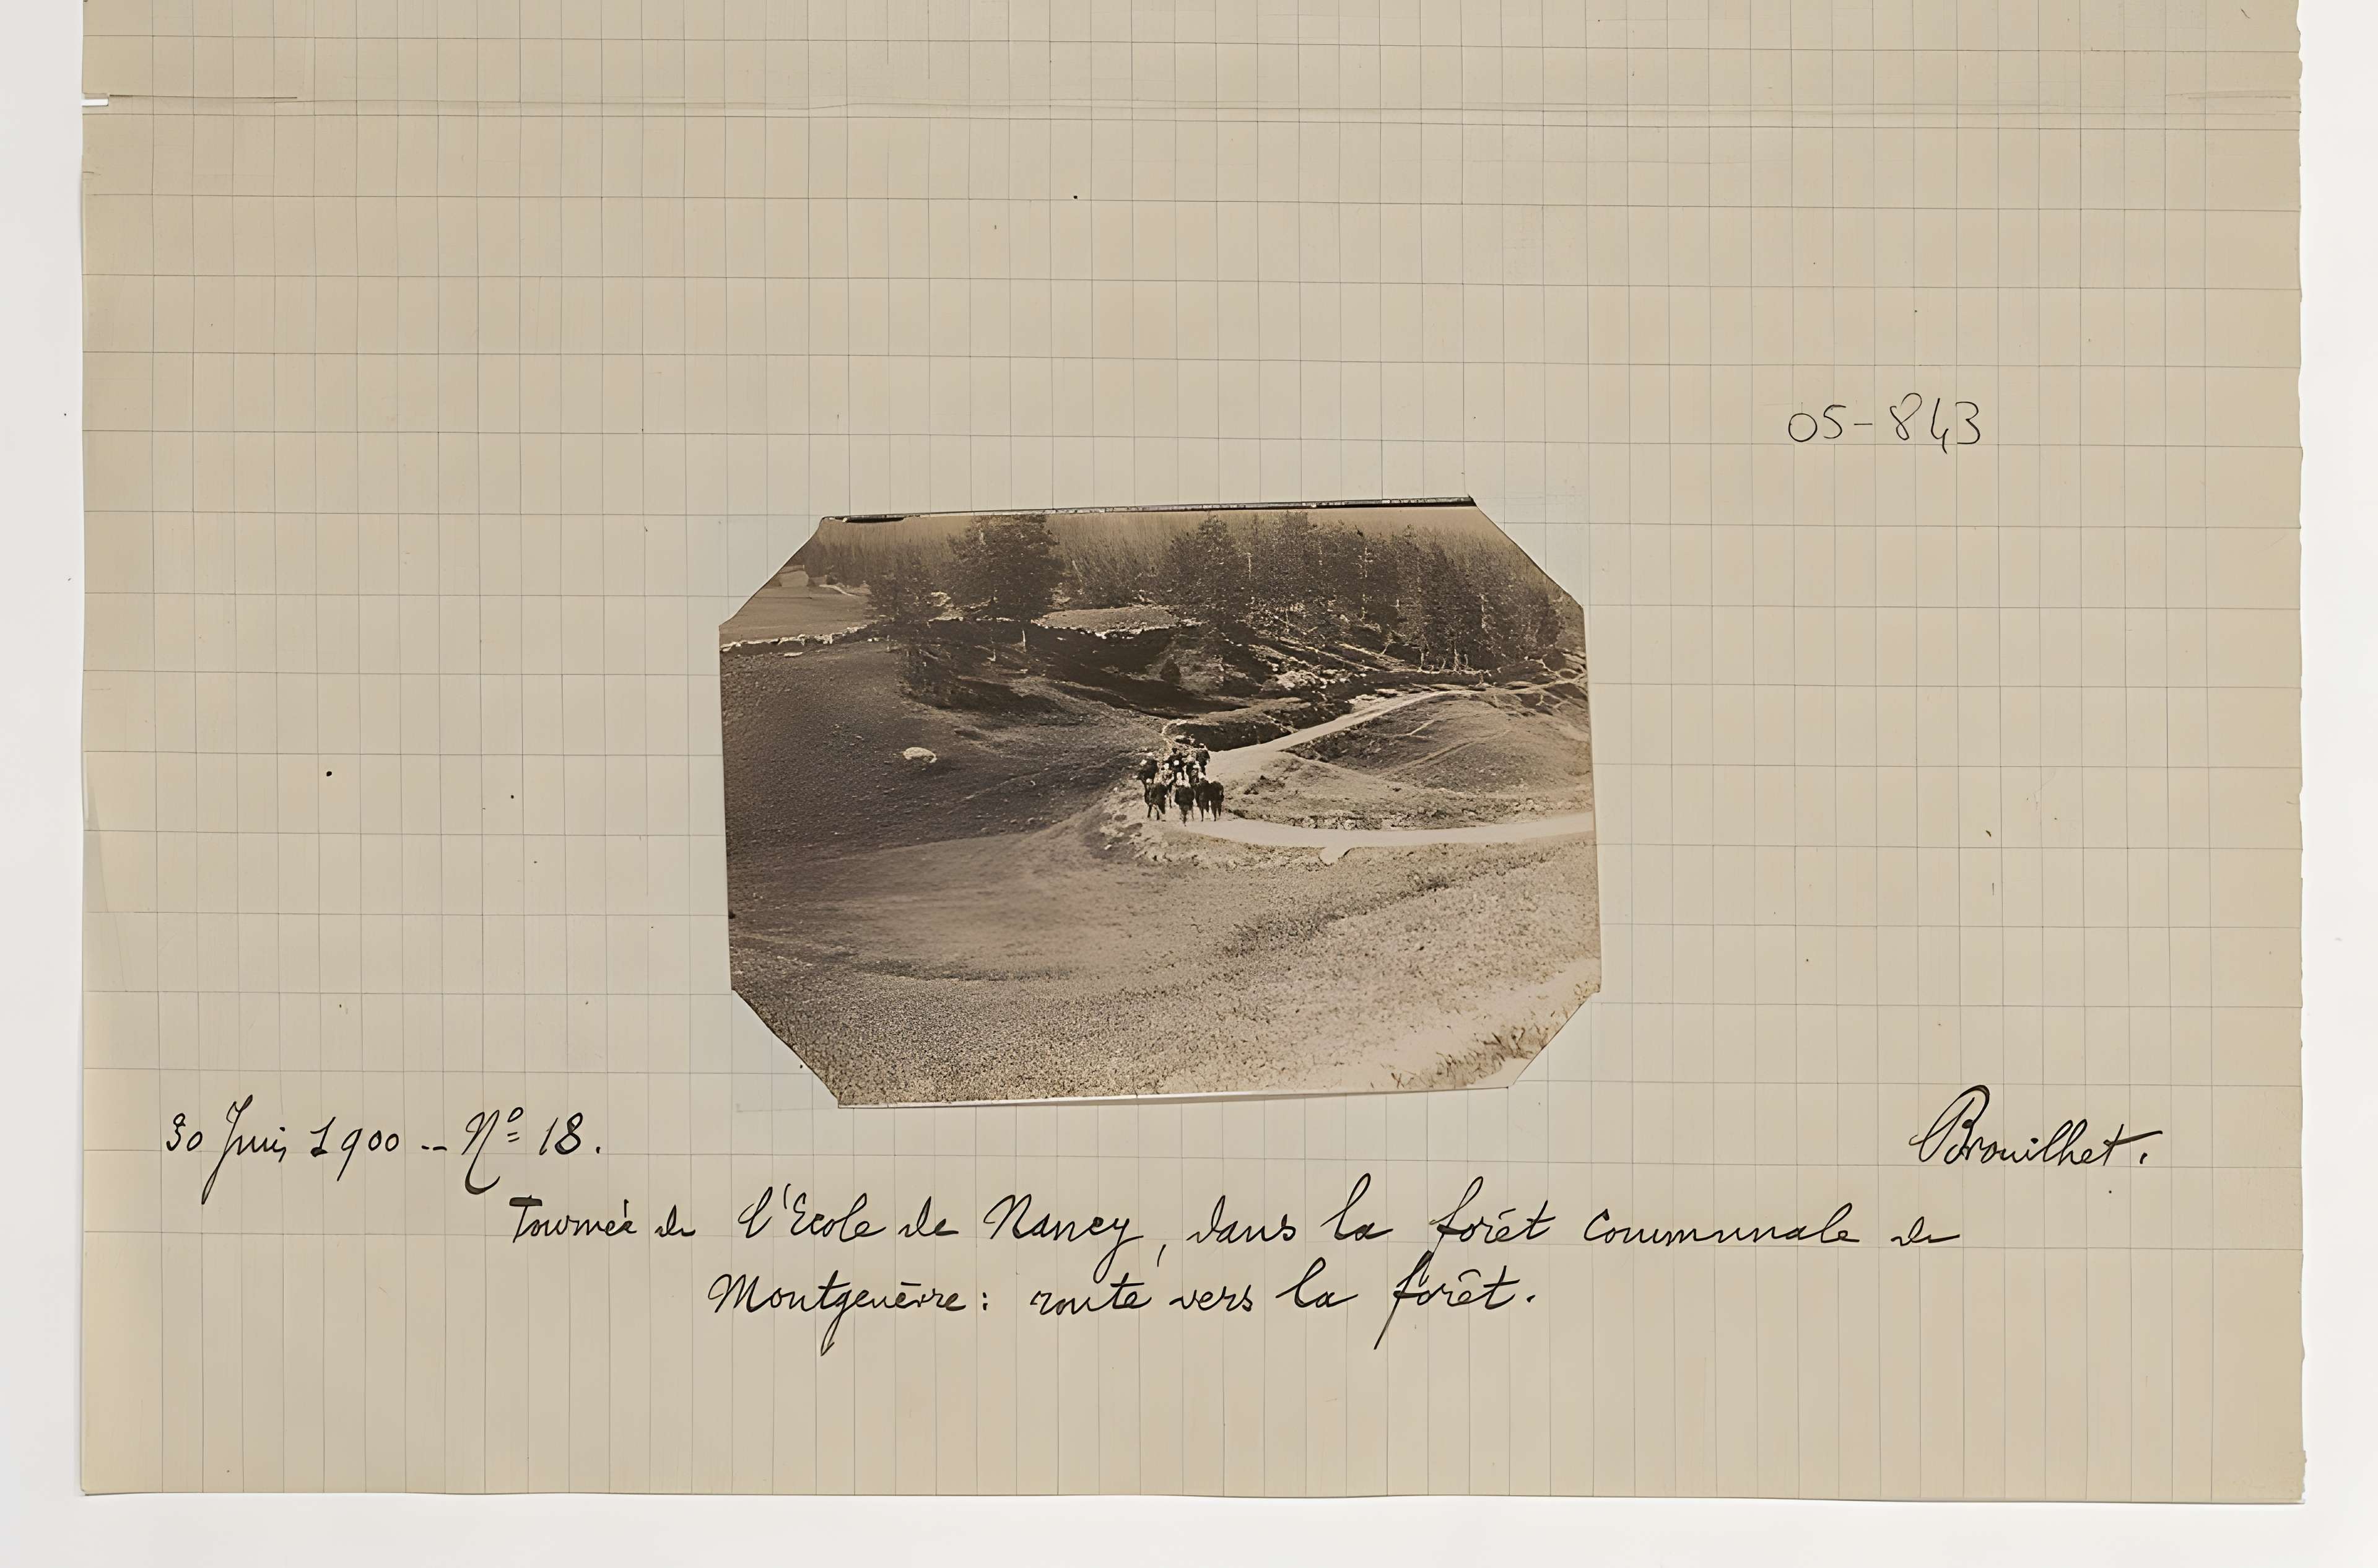 05-843
30 Juin 1900 -- Nº 18.
Brouilhet.
Tournée de l'Ecole de Nancy, dans la forêt communale de
Montgenèvre : route vers la forêt.